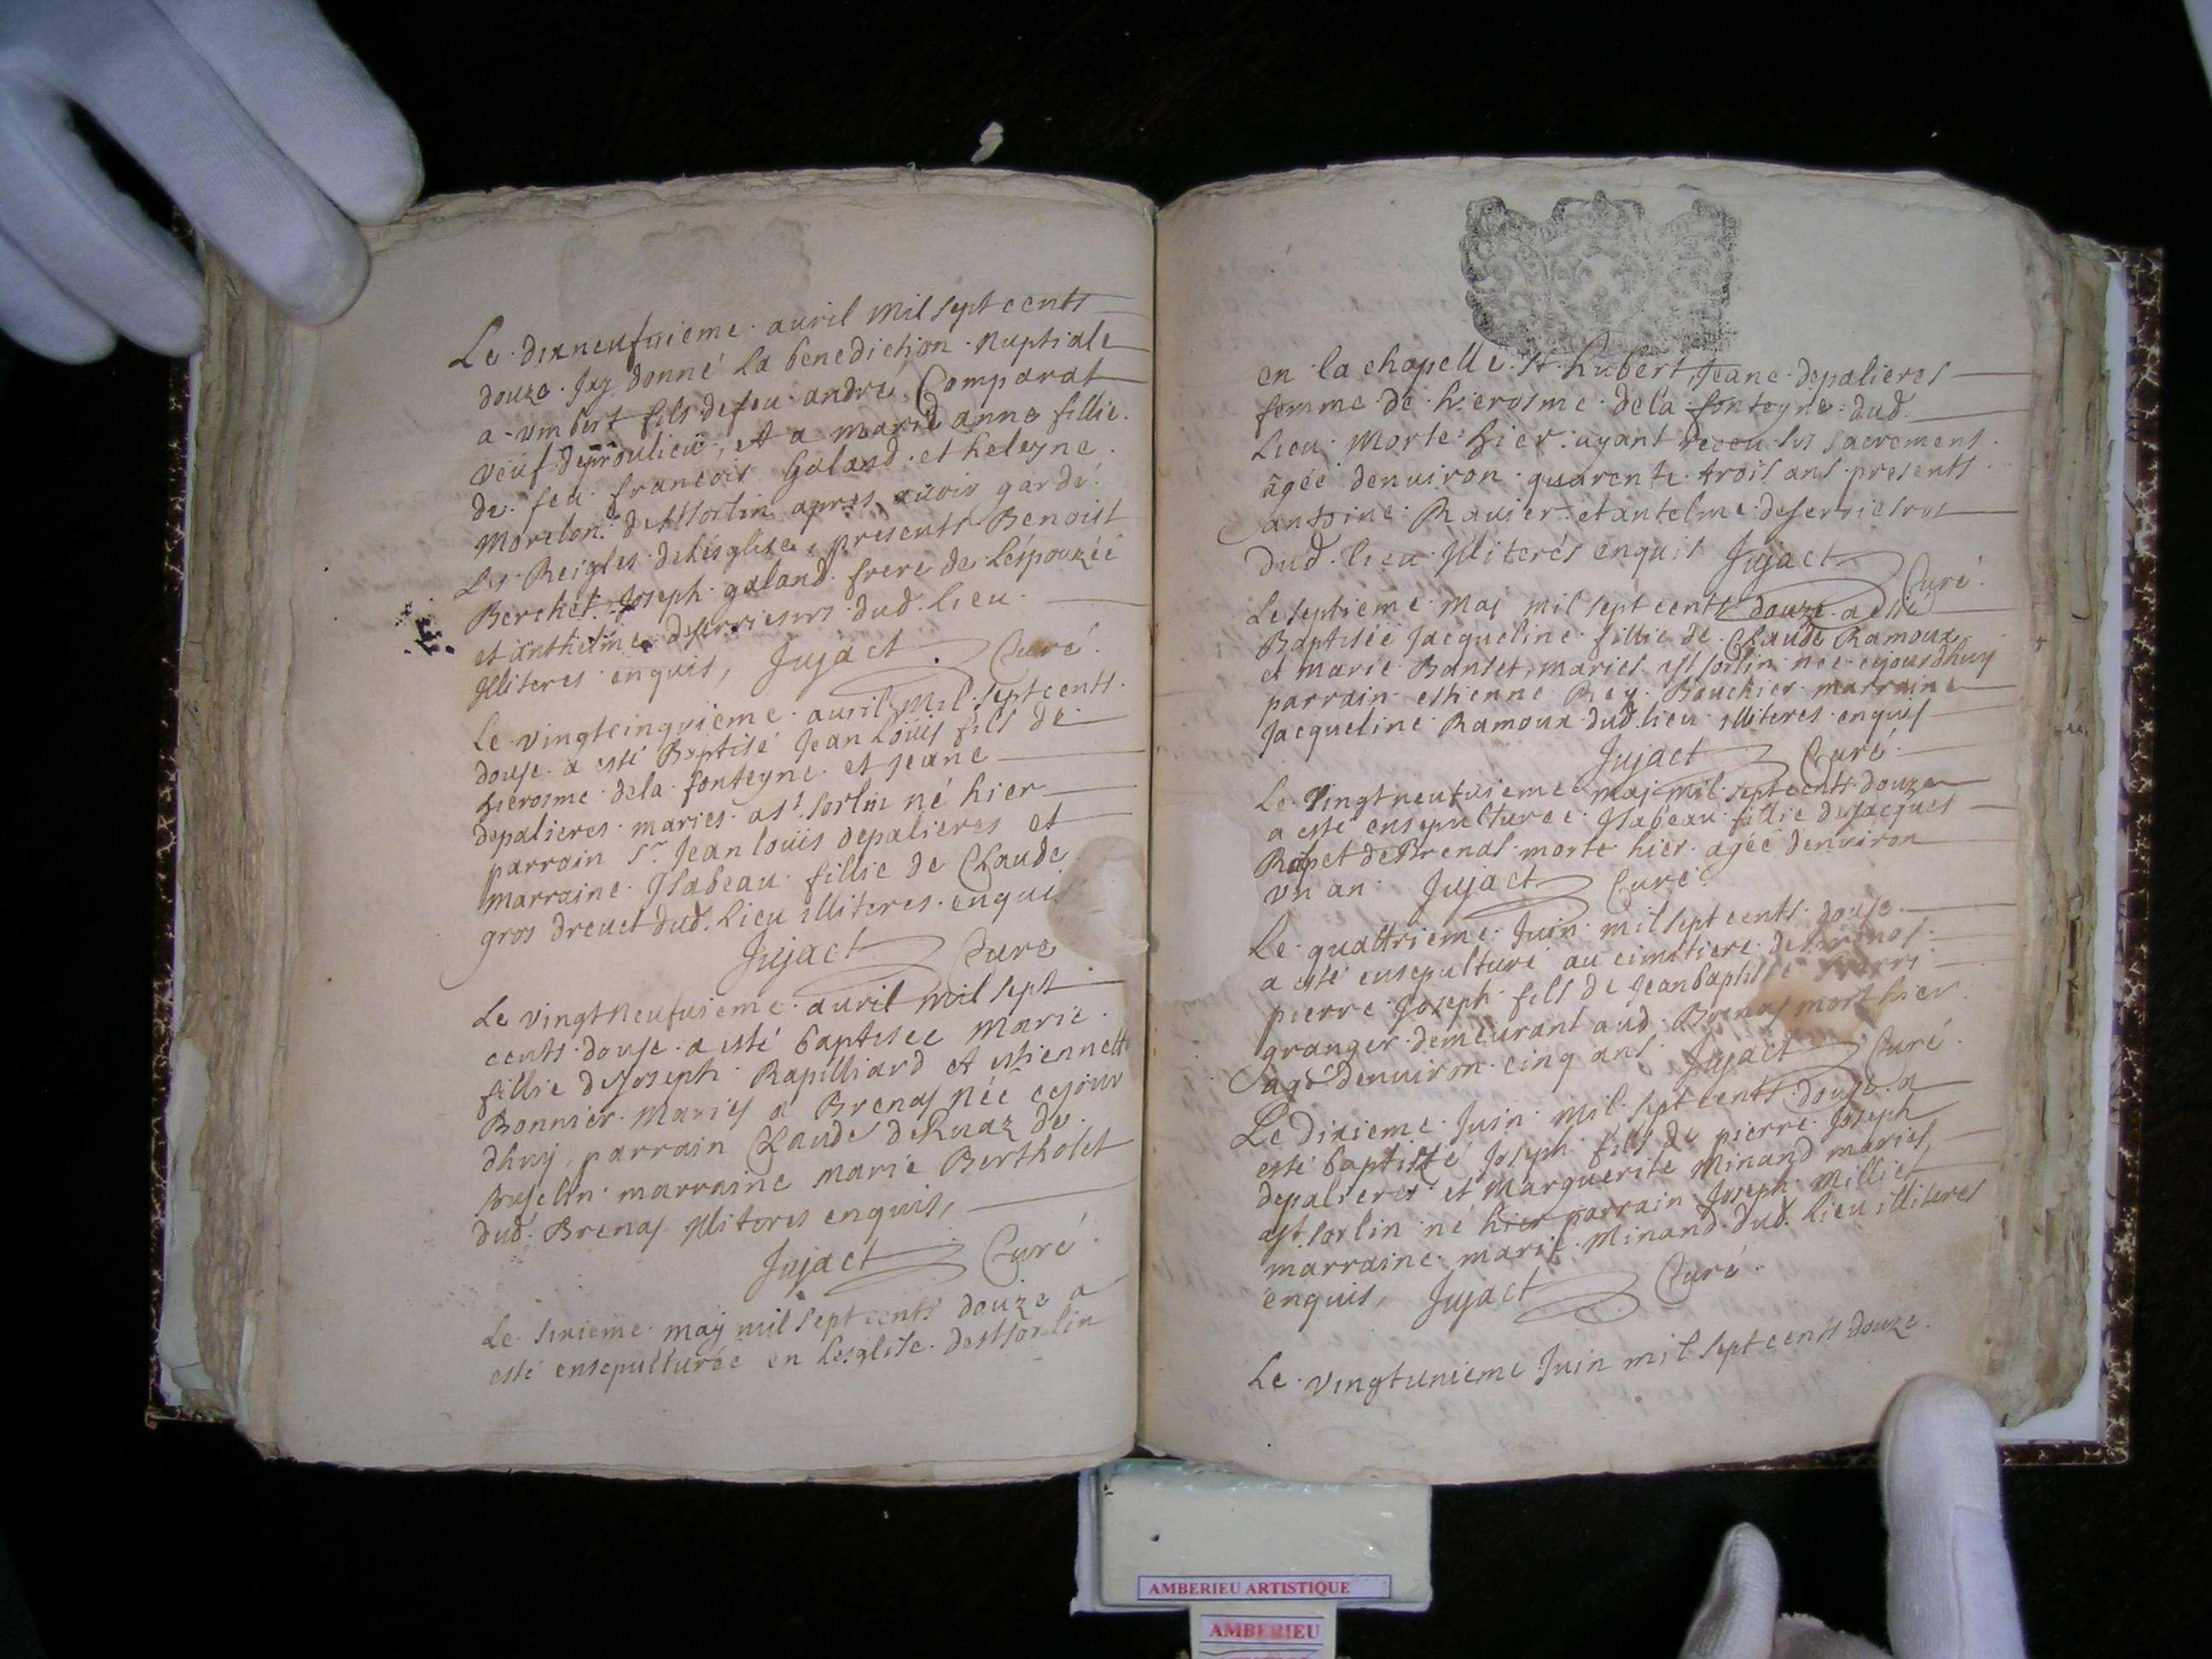 Le dixneufuieme auril mil sept cents
douze Jay donné la benediction Nuptiale
a vmbert fils de feu andré Comparat
veuf de proulieu, et a marie anne fillie
de feu francois Galand et heleyne
Morelon de st sorlin apres auoir gardé
Les Reigles de lésglise, presents Benoist
Berchet Joseph galand frere de Léspouzéé
et anthelme deserriesrs dud. lieu
Jlliteres enquis, Jujact Curé
Le vingtcinquieme auril mil sept cents
douse a esté Baptisé Jean Loüis fils de
hierosme dela fonteyne et jeane
depalieres maries a st sorlin né hier
parrain sr Jean loüis depalieres et
marraine Jsabeau fillie de Claude
gros dreuet dud. Lieu illiteres enquis
Jujact Curé
Le vingt neufuieme auril mil sept
cents douse a esté baptisee Marie
fillie de Joseph Rapilliard et estiennette
Bonnier Maries a Brenas Néé cejour
dhuy parrain Claude deRuaz de
Buselin marraine marie Bertholet
dud. Brenas Jlliteres enquis,
Jujact Curé
Le sixieme may mil sept cents douze a
esté ensepulturée en Lesglise de st sorlin
en la chapelle st hubert, Jeane depalieres
femme de hierosme dela fonteyne dud.
Lieu Morte hier ayant receu les sacrements
agéé denuiron quarente trois ans presents
antoine Rauier et antelme deserriesrs
dud. lieu Jlliterés enquis Jujact Curé
Le septieme Maj mil sept cents douze a esté
Baptiséé Jacqueline fillie de Claude Ramoux
et Marie Banset, maries a st sorlin née cejourdhuy
parrain estienne Rey Bouchier marraine
Jacqueline Ramoux dud. lieu illiteres enquis
Jujact Curé
Le Vingtneufuieme maj mil sept cents douze
a esté ensepulturee Jsabeau fillie de Jacques
Rapet de Brenas morte hier agéé denuiron
vn an Jujact Curé
Le quattrieme Juin mil sept cents douse
a esté ensepulturé au cimitiere de
pierre Joseph fils de Jean baptiste
granger demeurant aud. Brenas mort hier
agé denuiron cinq ans Jujact Curé
Le dixieme Juin mil sept cents douse a
esté baptisé Joseph fils de pierre Joseph
depalieres et Marguerite Minand maries
a st sorlin né hier parrain Joseph Milliet
marraine marie Minand dud. lieu illiteres
enquis, Jujact Curé
Le vingtunieme Juin mil sept cents douze
AMBERIEU ARTISTIQUE
AMBERIEU